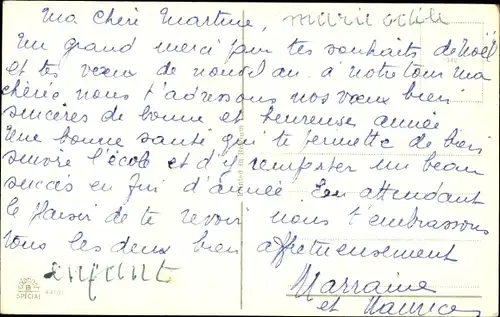 Ma chéri Martine, marie odile
Un grand merci pour tes souhaits de Noël
et tes vœux de nouvel an. à notre tour ma
chérie nous t'adressons nos vœux bien
sincères de bonne et heureuse année
Une bonne santé qui te permette de bien
suivre l'école et d'y remporter un beau
succès en fin d'année. En attendant
le plaisir de te revoir nous t'embrassons
tous les deux bien affectueusement
enfant
Marraine
et Maurice
SPECIAL